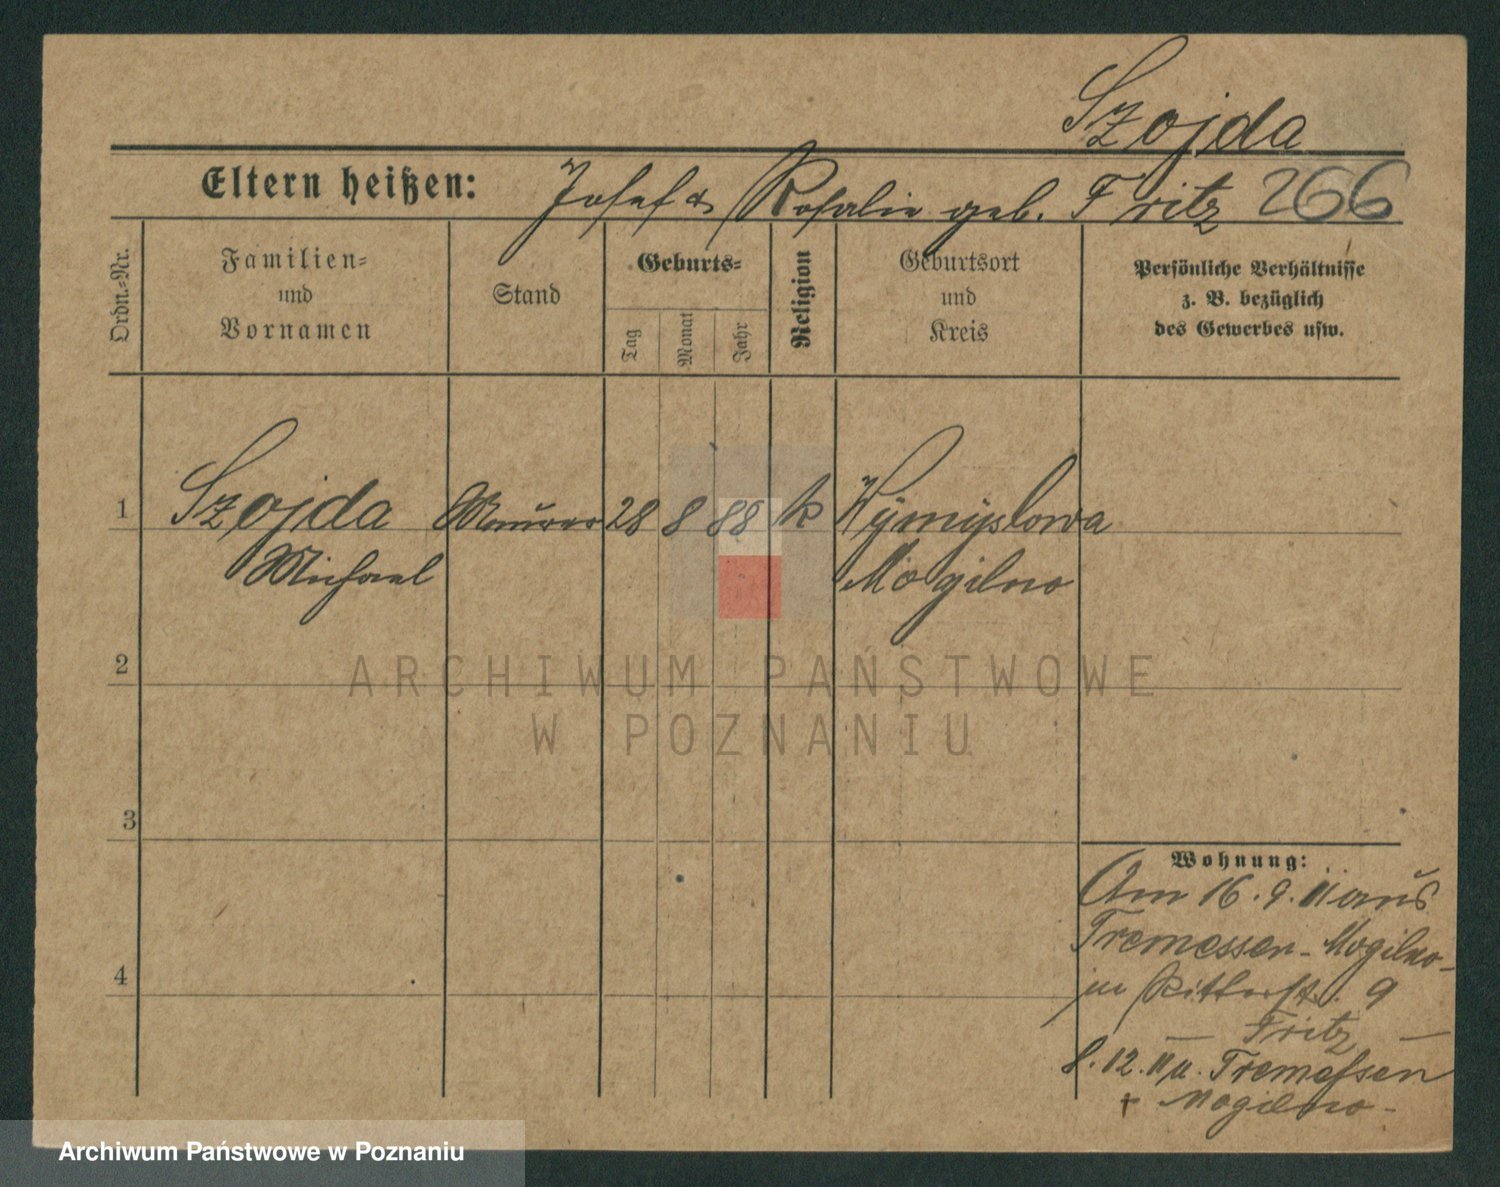 Szojda
Eltern heißen: Josef & Rosalie geb. Fritz 266
Ordn.-Nr.
Familien-
und
Vornamen
Stand
Geburts-
Tag
Monat
Jahr
Religion
Geburtsort
und
Kreis
Persönliche Verhältnisse
z. B. bezüglich
des Gewerbes usw.
1 Szojda Maurer 28 8 88 k Wymyslowa
Michael Mogilno
2
ARCHIWUM PAŃSTWOWE
W POZNANIU
3
Wohnung:
Am 16.9.11 aus
Tremessen - Mogilno -
in Ritterstr. 9
— Fritz —
4
8.12.11 n. Tremessen
+ Mogilno -
Archiwum Państwowe w Poznaniu